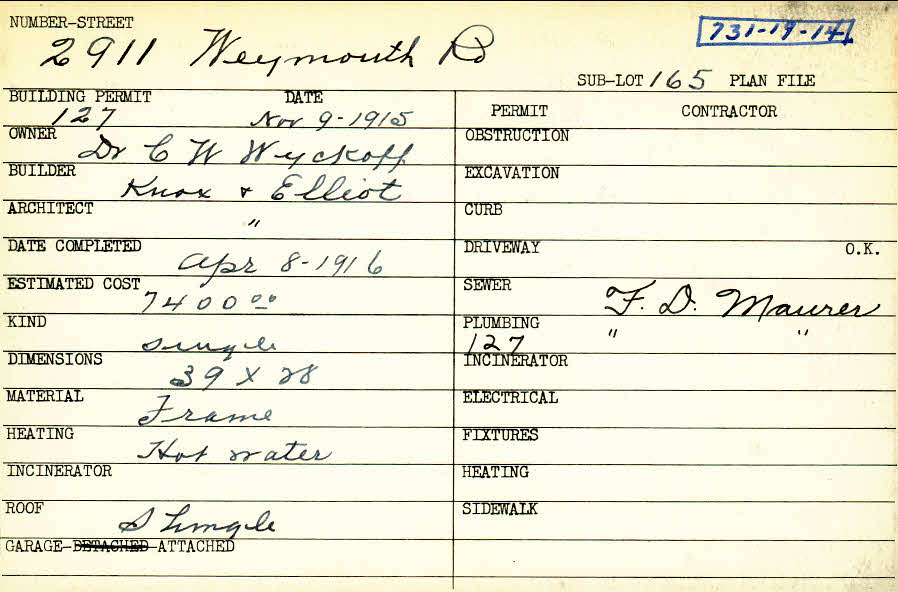 NUMBER-STREET
2911 Weymouth Rd
731-19-14
SUB-LOT 165 PLAN FILE
BUILDING PERMIT DATE
127 Nov 9-1915
OWNER
Dr C W Wyckoff
BUILDER
Knox & Elliot
ARCHITECT
"
DATE COMPLETED
Apr 8-1916
ESTIMATED COST
7400 00
KIND
single
DIMENSIONS
39 X 28
MATERIAL
Frame
HEATING
Hot water
INCINERATOR
ROOF
Shingle
GARAGE-DETACHED-ATTACHED
PERMIT CONTRACTOR
OBSTRUCTION
EXCAVATION
CURB
DRIVEWAY O.K.
SEWER
F. D. Maurer
PLUMBING " "
127
INCINERATOR
ELECTRICAL
FIXTURES
HEATING
SIDEWALK